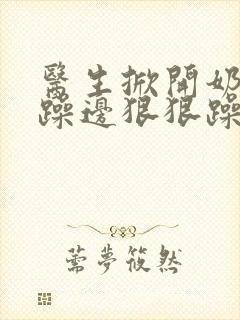 醫生掀開奶
躁邊狠狠躁
薷夢筱然